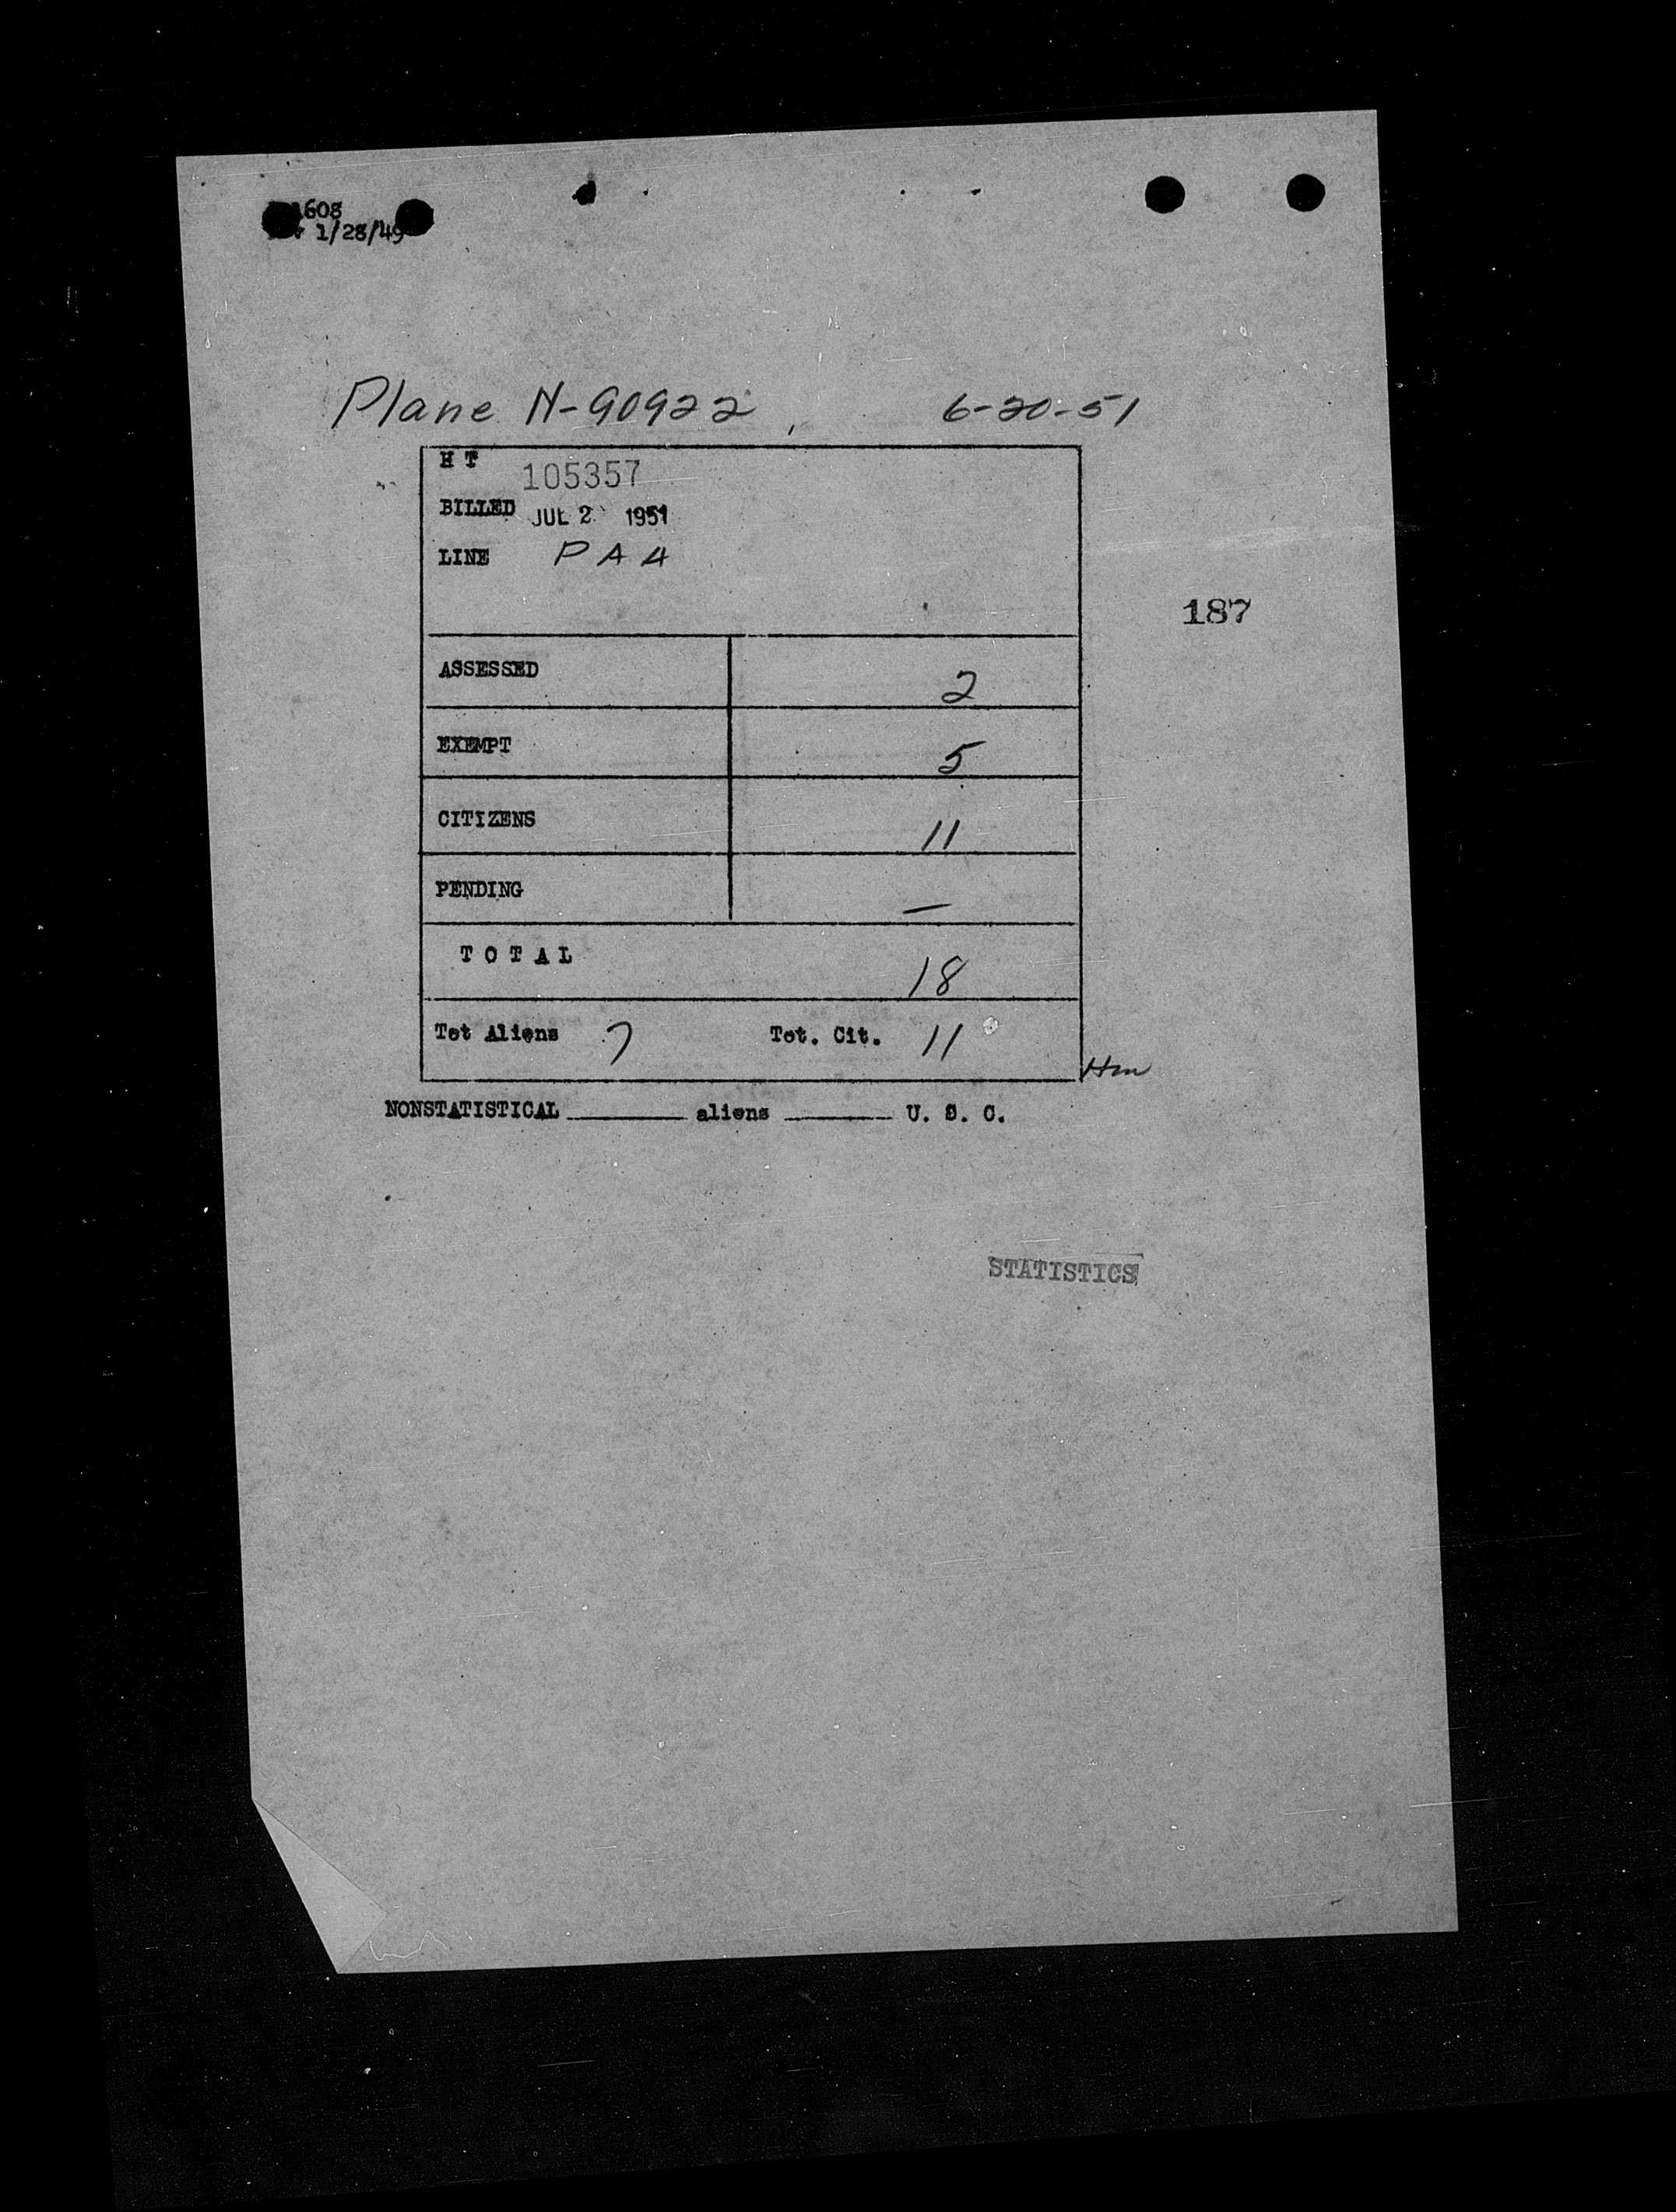 1608
1/28/49
Plane N-90922, 6-20-51
H T 105357
BILLED JUL 2 1951
LINE P A A
187
ASSESSED 2
EXEMPT 5
CITIZENS 11
PENDING —
T O T A L 18
Tot Aliens 7 Tot. Cit. 11
NONSTATISTICAL ________ aliens ________ U. S. C.
STATISTICS